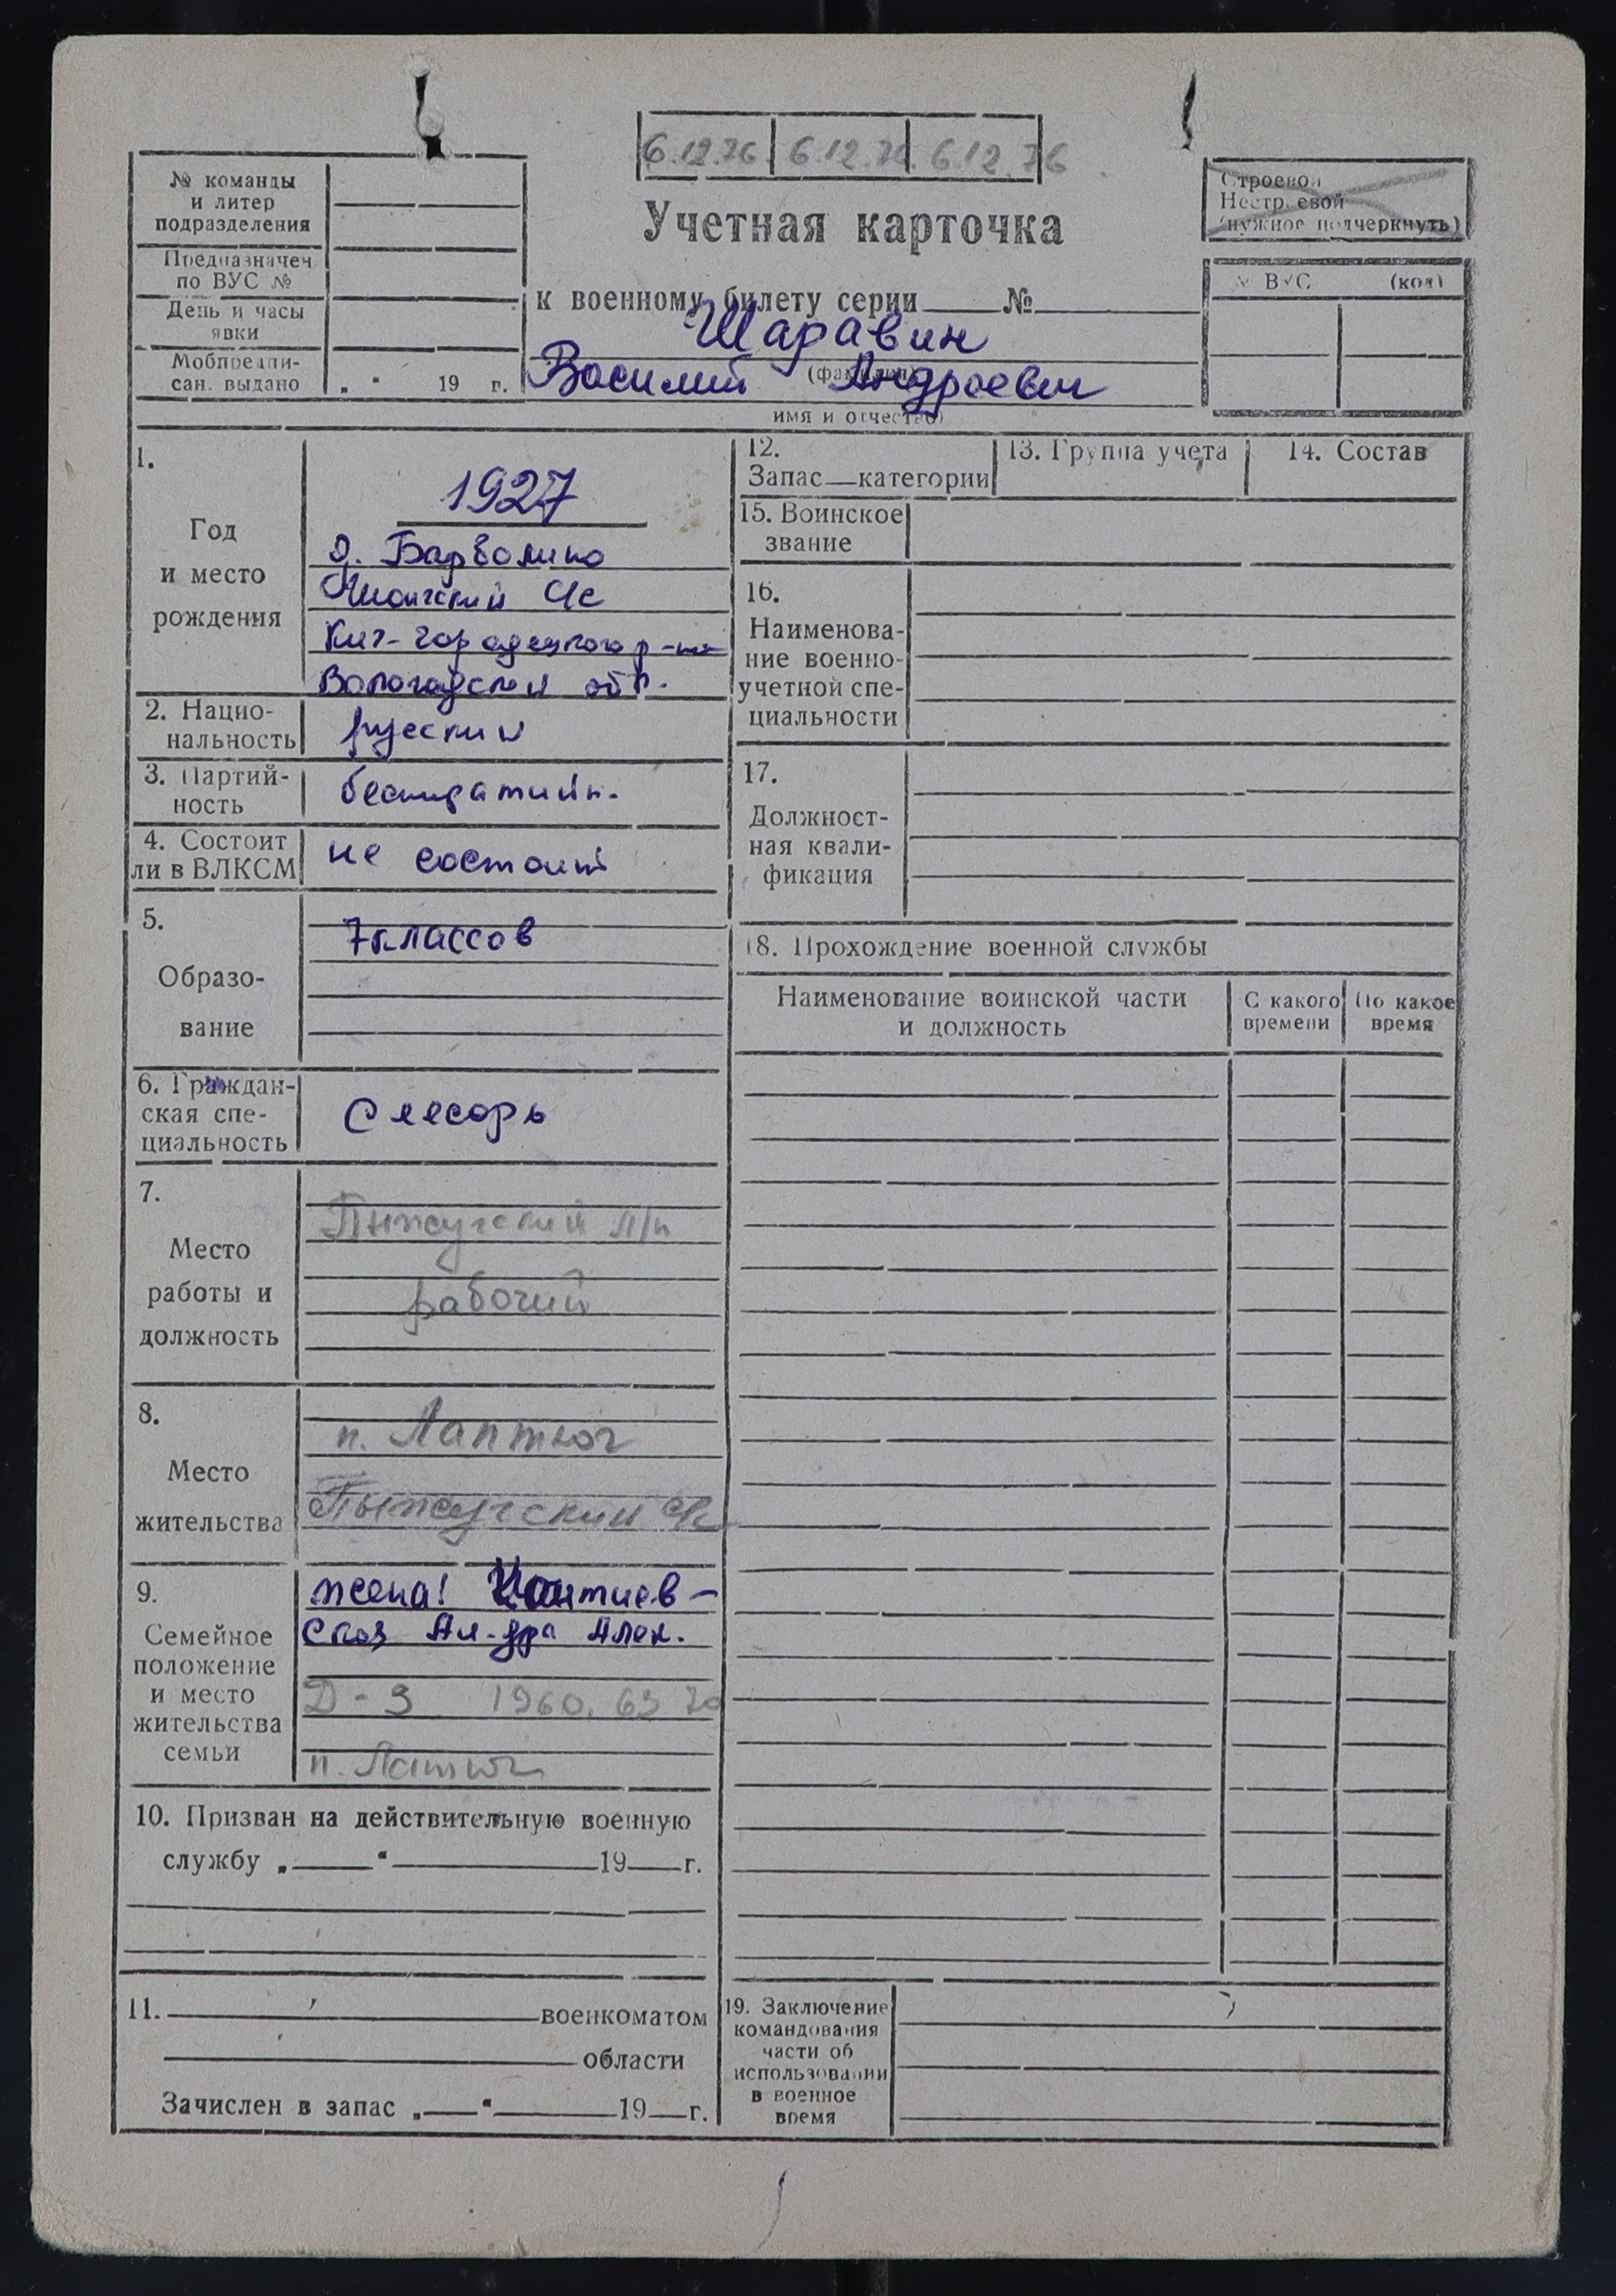 6.12.76 6.12.76 6.12.76
№ команды
и литер
подразделения
Предназначен
по ВУС №
День и часы
явки
Мобпредпи-
сан. выдано „ “ 19 г.
Учетная карточка
к военному билету серии №
Шаравин
(фамилия)
Василий Андреевич
имя и отчество)
Строевой
Нестроевой
(нужное подчеркнуть)
№ ВУС (код)
1.
Год
и место
рождения
1927
д. Барболино
с/с
Кич-Городецкого р-на
Вологодской обл.
2. Нацио-
нальность
русский
3. Партий-
ность
4. Состоит
ли в ВЛКСМ
не состоит
5.
Образо-
вание
7 классов
6. Граждан-
ская спе-
циальность
Слесарь
7.
Место
работы и
должность
Пыжугский л/п
рабочий
8.
Место
жительства
п. Лаптюг
Пыжугский с/с
9.
Семейное
положение
и место
жительства
семьи
жена!
ская Ал-дра Алек.
Д - 3 1960. 63 70
п. Лаптюг
10. Призван на действительную военную
службу „ “ 19 г.
11. военкоматом
области
Зачислен в запас „ “ 19 г.
12.
Запас—категории
13. Группа учета
14. Состав
15. Воинское
звание
16.
Наименова-
ние военно-
учетной спе-
циальности
17.
Должност-
ная квали-
фикация
18. Прохождение военной службы
Наименование воинской части
и должность
С какого
времени
По какое
время
19. Заключение
командования
части об
использовании
в военное
время